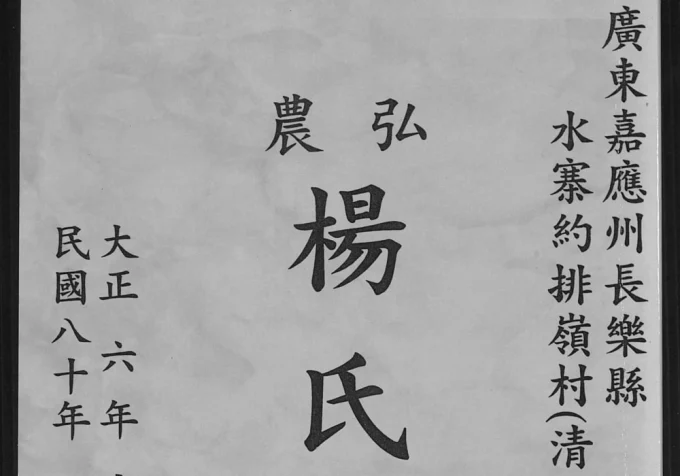 廣東嘉應州長樂縣
水寨約排嶺村(清
弘農
楊氏
大正六年
民國八十年